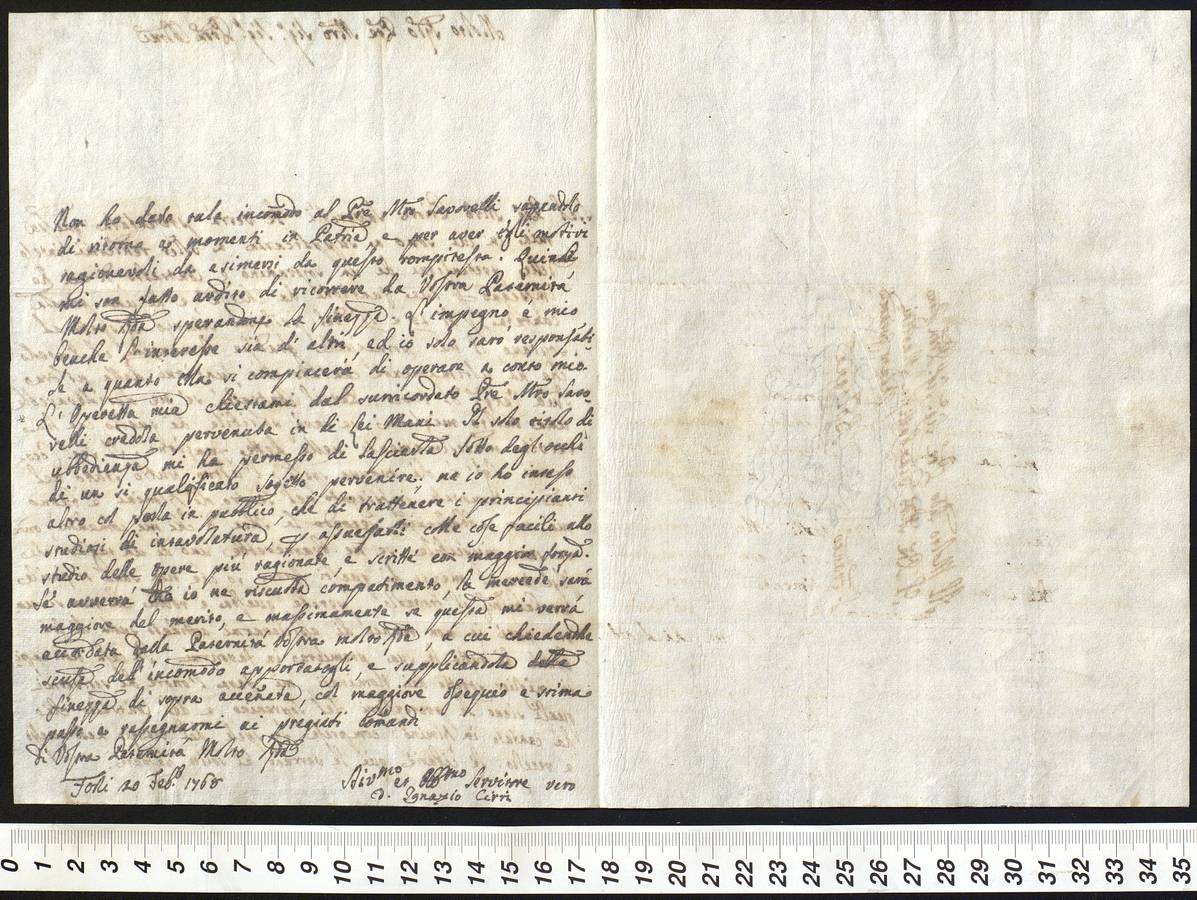 Non ho dato tale incomodo al Pre Mro Savorelli sapendolo
di ritorno a momenti in Patria e per aver egli motivi
ragionevoli da esimersi da questo Quindi
mi son fatto ardito di ricorrere da Vostra Paternità
Molto Rda sperandone la finezza. L'impegno e mio
benche l'interesse sia d'altri, ed io solo sarò responsabi
le a quanto Ella si compiacerà di operare a conto mio.
L'Operetta mia chiestami dal surricordato Pre Mro Savo
relli credola pervenuta in di Lei Mani. Il solo titolo di
ubbidienza mi ha permesso di lasciarla sotto degl'occhi
di un si qualificato sogetto pervenire; ma io ho inteso
altro col porla in pubblico, che di trattenere i principianti
studiosi di intavolatura, p assuefarli colle cose facili allo
studio delle opere più ragionate e scritte con maggior forza.
Se avverrà io ne riscuota compatimento, la mercede sarà
maggiore del merito, e massimamente se questa mi verrà
accordata dalla Paternità Vostra molto Rda, a cui chiedendole
scusa dell'incomodo apportatogli, e supplicandola della
finezza di sopra accenata, col maggiore ossequio e stima
passo a rassegnarmi ai pregiati Comandi
di Vostra Paternità Molto Rda
Forlì 20 Feb.o 1768
Divmo ed Obmo Servitore vero
D. Ignazio Cirri